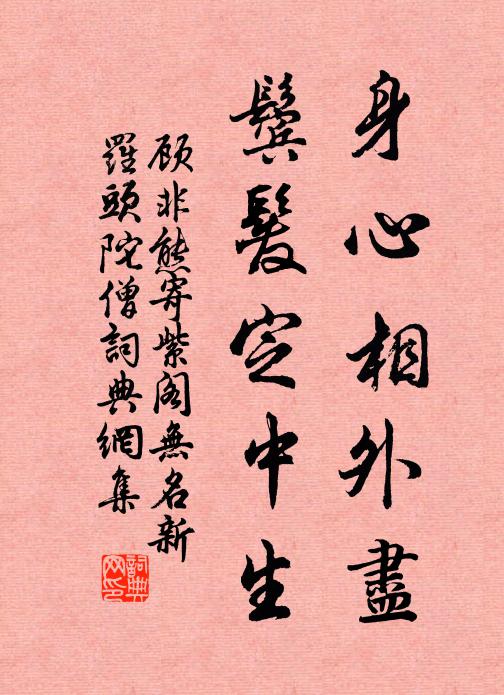 身心相外盡
鬢髮定中生
顧非熊寄紫閣無名新
羅頭陀僧詞典網集
詞典網印